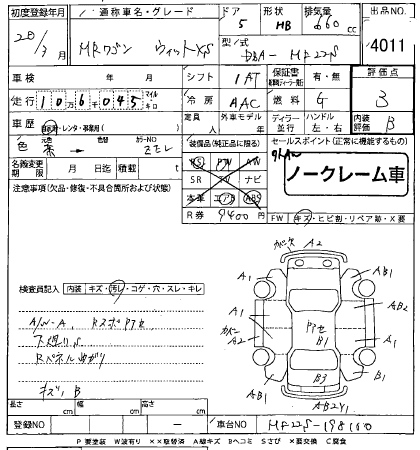 初度登録年月
通称車名・グレード
ドア 形状 排気量
出品NO.
20/7月
MRワゴン ウィットXS
5 HB 660 cc
4011
型/式
DBA-MF22S
車検 年 月
シフト 1AT
保証書 有・無
評価点
走行 106045 マイル キロ
冷房 AAC
燃料 G
3
車歴 自家用・レンタ・事業用( )
定員 人
外車モデル
ディーラー 並行
ハンドル 左・右
内装 B
色 元色 カラーNO
装備品(純正品に限る)
セールスポイント(正常に機能するもの)
PS PW AW
ノークレーム車
名義変更期限 月 日迄 積載 t
SR TV ナビ
注意事項(欠品・修復・不具合箇所および状態)
本革 エアB ABS
R券 9400円
FW キズ・ヒビ割・リペア跡・X要
A2
A1 AB1
検査員記入 内装 キズ・汚レ・コゲ・穴・スレ・キレ
A1 AB2
A/W-A. RスポPタセ
A2 Pタセ A1
下廻りS
B1
Rパネル曲がり
A1 B3 B
キズ, B
AB2Y1
長さ cm 幅 cm 高さ cm
登録NO 車台NO MF22S-198100
P 要塗装 W波有り ××取替済 A線キズ Bヘコミ Sさび ×要交換 C腐食